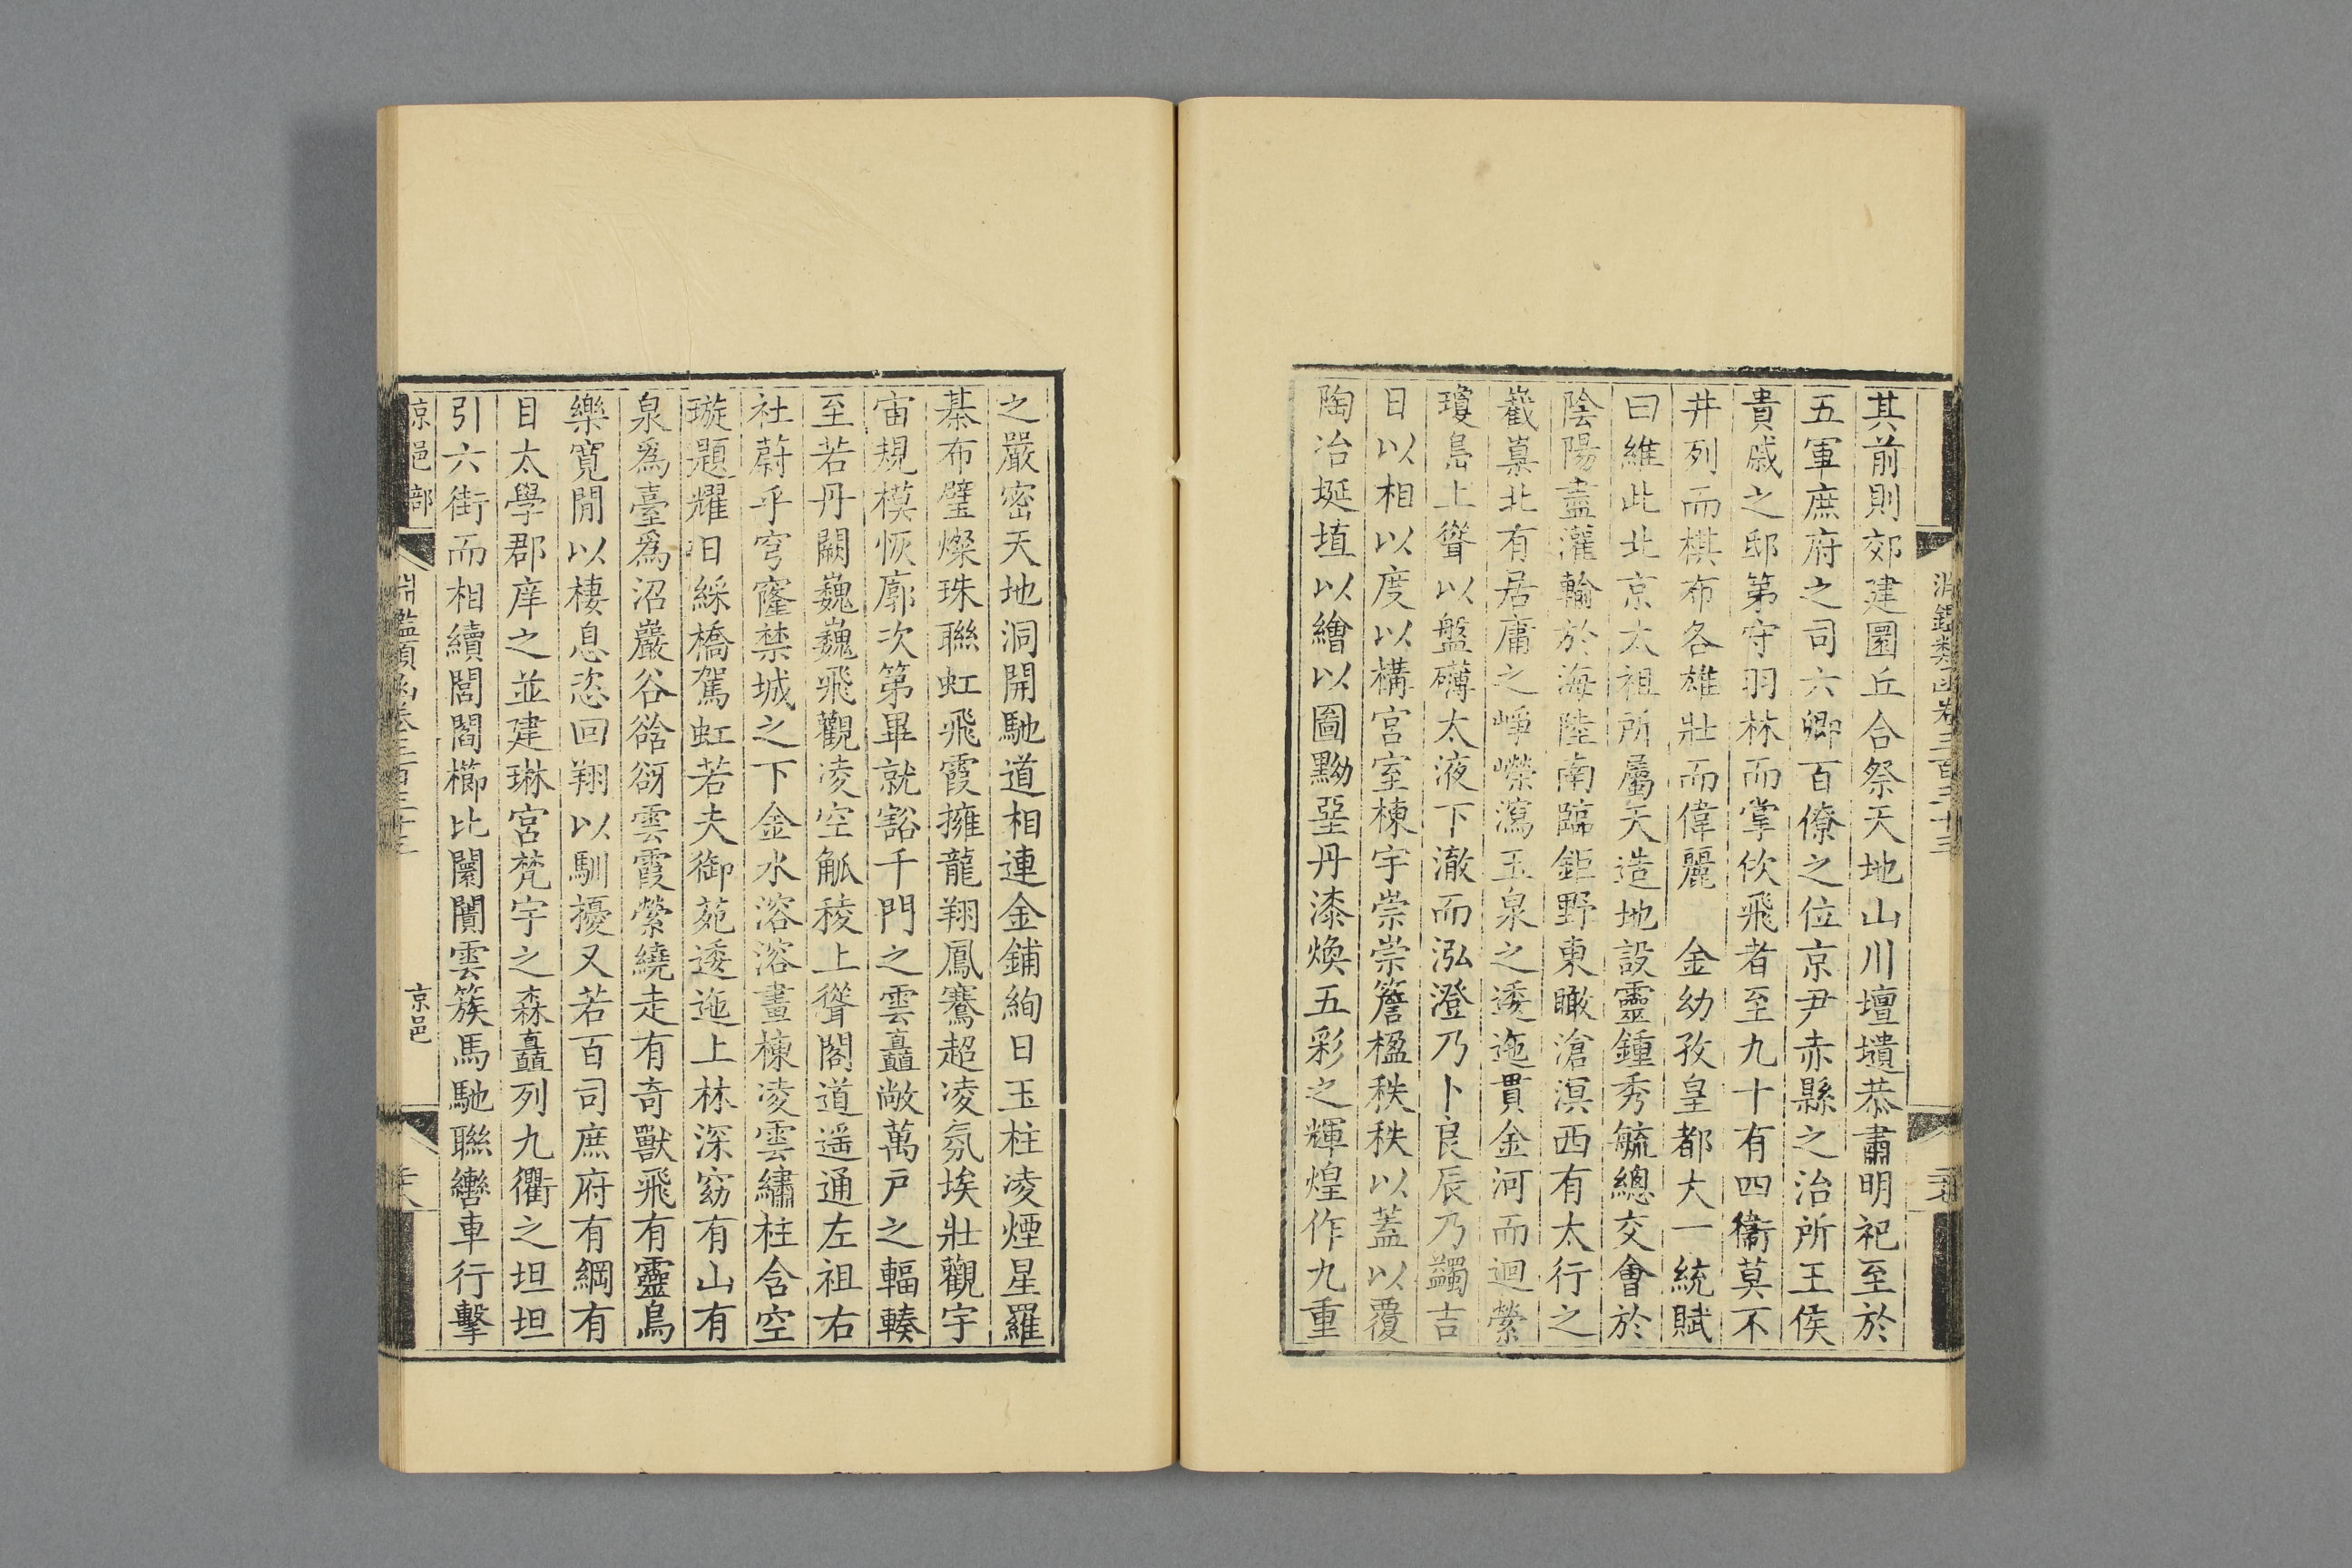 其前則郊建圜丘合祭天地山川壇壝恭肅明祀至於
五軍庶府之司六卿百僚之位京尹赤縣之治所王侯
貴戚之邸第守羽林而掌佽飛者至九十有四衞莫不
井列而棋布各雄壯而偉麗　金幼孜皇都大一統賦
曰維此北京太祖所屬天造地設靈鍾秀毓總交會於
陰陽盡灌輸於海陸南臨鉅野東瞰滄溟西有太行之
巀嶪北有居庸之崢嶸瀉玉泉之逶迤貫金河而迴縈
瓊島上聳以盤礴太液下澈而泓澄乃卜良辰乃蠲吉
日以相以度以構宮室棟宇崇崇簷楹秩秩以蓋以覆
陶冶埏埴以繪以圖黝堊丹漆煥五彩之輝煌作九重
之嚴密天地洞開馳道相連金鋪絢日玉柱凌煙星羅
棊布璧燦珠聯虹飛霞擁龍翔鳳騫超凌氛埃壯觀宇
宙規模恢廓次第畢就豁千門之雲矗敞萬戸之輻輳
至若丹闕巍巍飛觀凌空觚稜上聳閣道遥通左祖右
社蔚乎穹窿禁城之下金水溶溶畫棟凌雲繡柱含空
璇題耀日綵橋駕虹若夫御苑逶迤上林深窈有山有
泉爲臺爲沼巖谷谽谺雲霞縈繞走有奇獸飛有靈鳥
樂寬閒以棲息恣回翔以馴擾又若百司庶府有綱有
目太學郡庠之並建琳宮梵宇之森矗列九衢之坦坦
引六街而相續閭閻櫛比闤闠雲簇馬馳聯轡車行擊
京邑部
淵鑑類函卷三百三十三
京邑